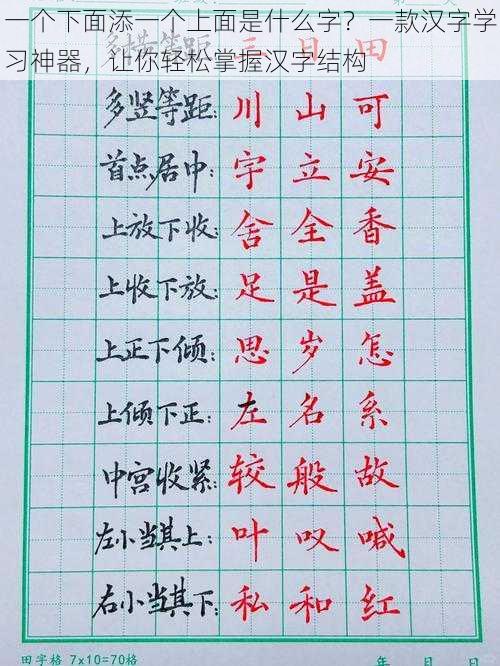 一个下面添一个上面是什么字？一款汉字学
习神器，让你轻松掌握汉字结构
多横等距: 日 田
多竖等距: 川 山 可
首点居中: 宇 立 安
上放下收: 舍 全 香
上收下放: 足 是 盖
上正下倾: 思 岁 怎
上倾下正: 左 名 系
中宫收紧: 较 般 故
左小当其上: 叶 叹 喊
右小当其下: 私 和 红
田字格 7×10=70格 年 月 日